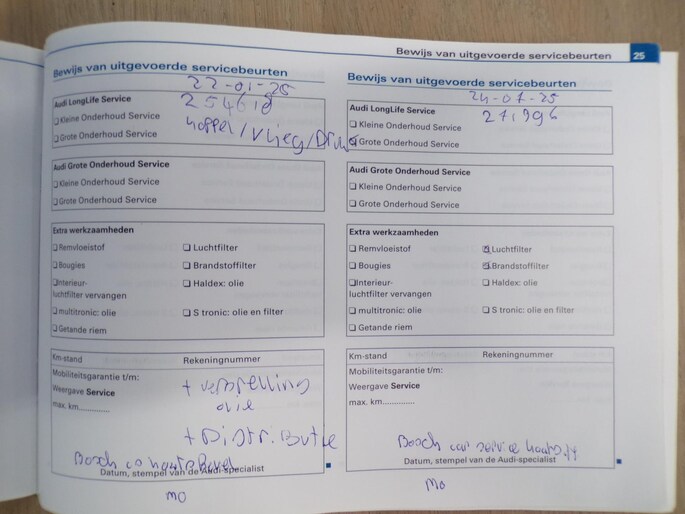 Bewijs van uitgevoerde servicebeurten 25
Bewijs van uitgevoerde servicebeurten
22-01-25
Audi LongLife Service 254618
Kleine Onderhoud Service
Grote Onderhoud Service
koppel/vlieg/Druk
Audi Grote Onderhoud Service
Kleine Onderhoud Service
Grote Onderhoud Service
Extra werkzaamheden
Remvloeistof Luchtfilter
Bougies Brandstoffilter
Interieur- Haldex: olie
luchtfilter vervangen
multitronic: olie S tronic: olie en filter
Getande riem
Km-stand Rekeningnummer
Mobiliteitsgarantie t/m:
Weergave Service
max. km..........
+ olie
+ Distributie
Bosch
Datum, stempel van de Audi-specialist
MO
Bewijs van uitgevoerde servicebeurten
24-07-25
Audi LongLife Service 271996
Kleine Onderhoud Service
Grote Onderhoud Service
Audi Grote Onderhoud Service
Kleine Onderhoud Service
Grote Onderhoud Service
Extra werkzaamheden
Remvloeistof Luchtfilter
Bougies Brandstoffilter
Interieur- Haldex: olie
luchtfilter vervangen
multitronic: olie S tronic: olie en filter
Getande riem
Km-stand Rekeningnummer
Mobiliteitsgarantie t/m:
Weergave Service
max. km.............
Bosch car service
Datum, stempel van de Audi-specialist
MO